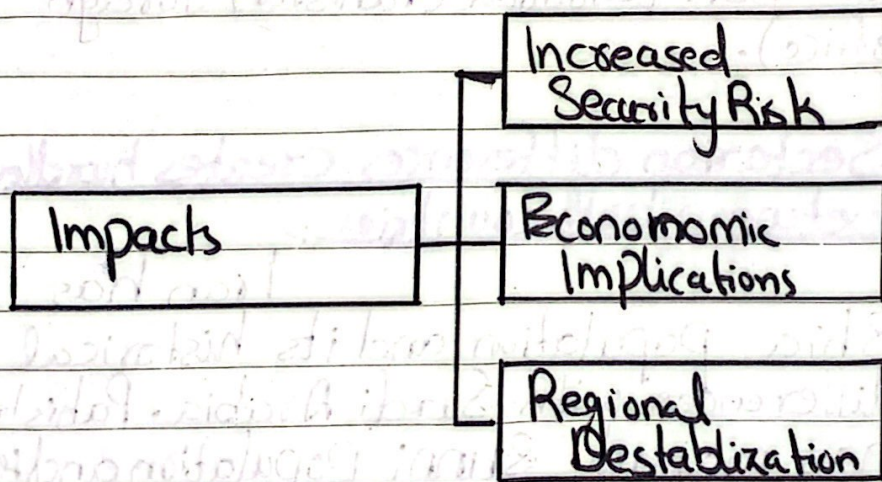 Increased
Security Risk
Impacts
Economomic
Implications
Regional
Destablization